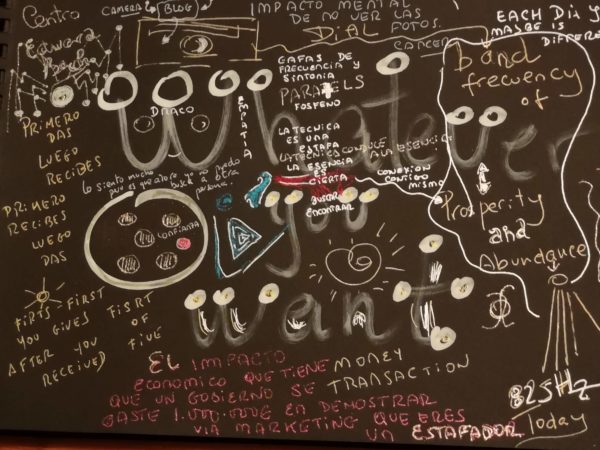 Centro
CAMERA
BLOG
IMPACTO MENTAL
DE NO VER LAS
FOTOS.
DIAL
CANCER
EACH DIA Y
MAYBE IS
DIFFERE
PRIMERO
DAS
LUEGO
RECIBES
PRIMERO
RECIBES
LUEGO
DAS
FIRTS-FIRST
YOU GIVES
AFTER YOU
RECEIVED
FISRT
OF
FIVE
DRACO
EMPATIA
GAFAS DE
FRECUENCIA Y
SINTONIA
FOSFENO
LA TECNICA
ES UNA
ESTAFA
LA TECNICA CONDUCE A LA ESENCIA
LA ESENCIA
ES
CIERTA
BUSCAR
ENCONTRAR
CONEXION
CONTIGO
MISMO
Lo siento mucho
CONFIANZA
Whatever
you
want
band
frecuency
of
Prosperity
and
Abundance
825Hz
Today
EL IMPACTO
ECONOMICO QUE TIENE MONEY
QUE UN GOBIERNO SE TRANSACTION
GASTE 1.000.000€ EN DEMOSTRAR
VIA MARKETING QUE ERES
UN ESTAFADOR